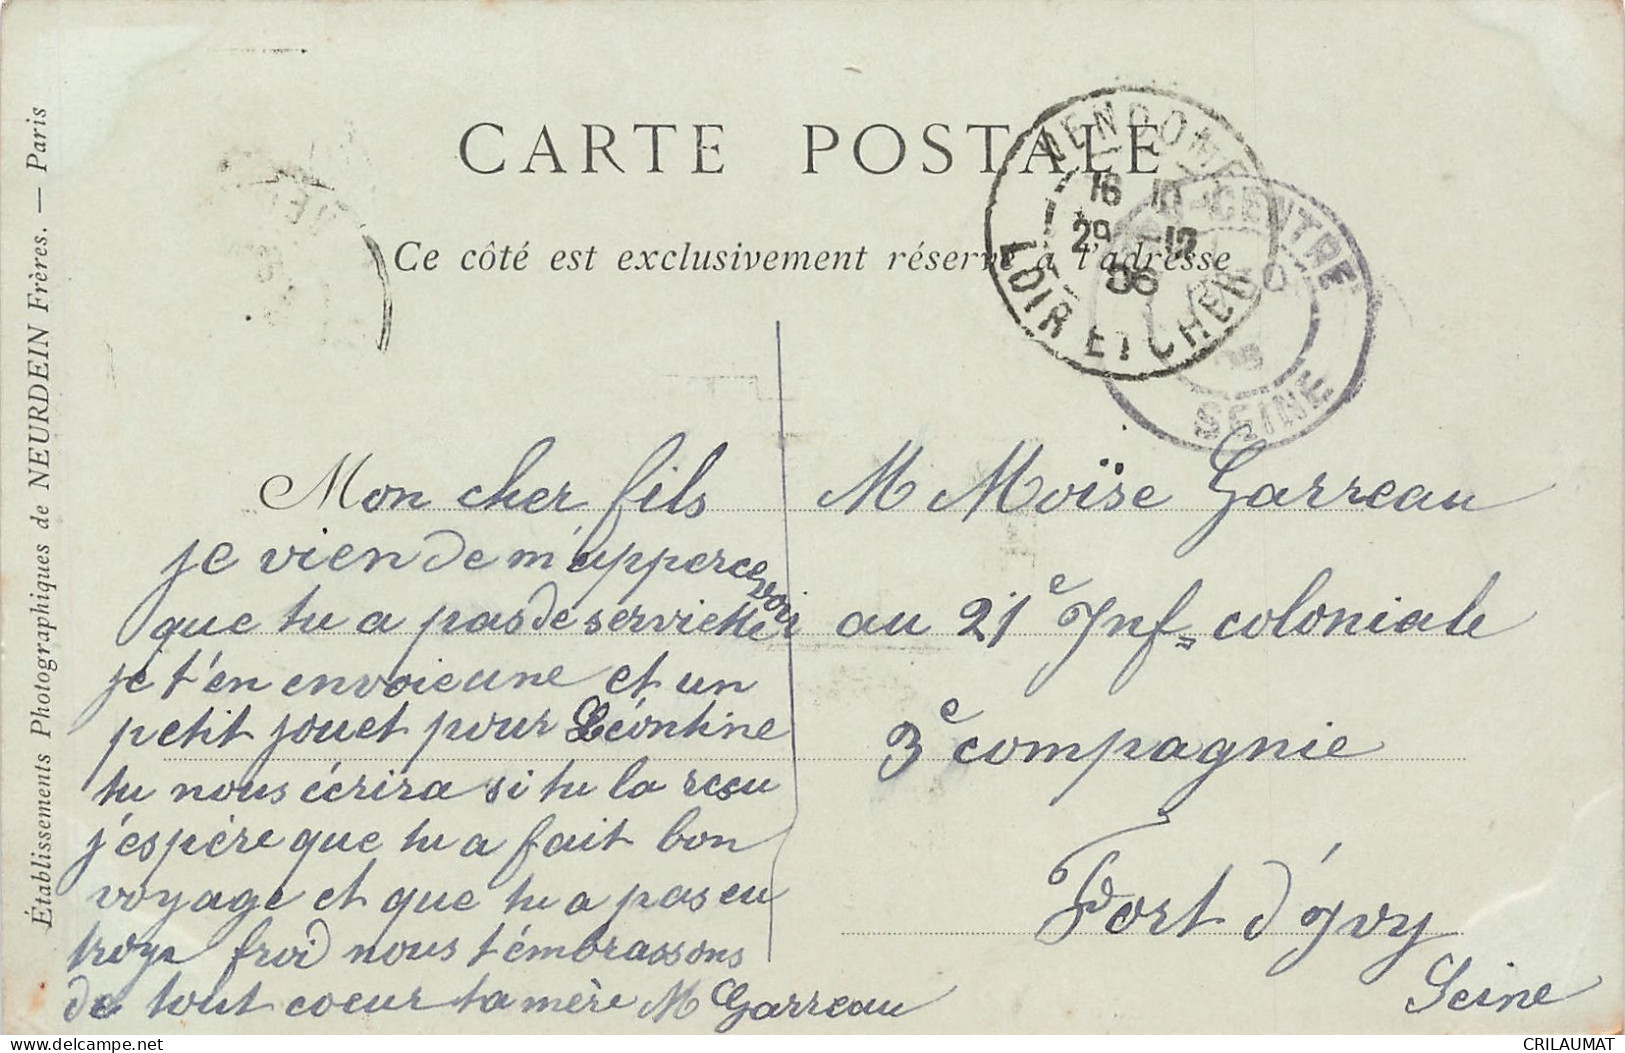 CARTE POSTALE
Ce côté est exclusivement réservé à l'adresse
VENDOME
16 10
29 -12
06
LOIR ET CHER
CENTRE
SEINE
Établissements Photographiques de NEURDEIN Frères. — Paris
Mon cher fils
je vien de m'appercevoir
que tu a pas de serviette
je t'en envoie une et un
petit jouet pour Léontine
tu nous écrira si tu la reçu
j'espère que tu a fait bon
voyage et que tu a pas eu
trop froid nous t'émbrassons
de tout coeur ta mère M Garreau
M Moïse Garreau
au 21e Inf= coloniale
3e compagnie
Fort d'Ivry
Seine
CRILAUMAT